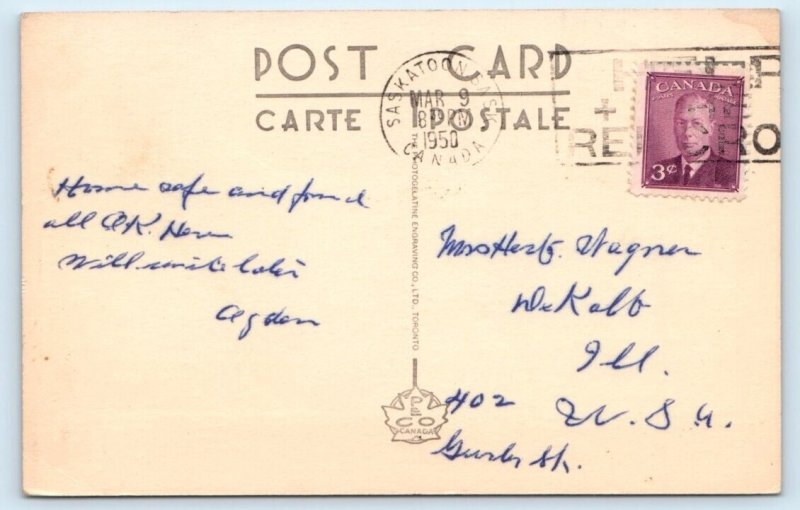 POST CARD
CARTE POSTALE
SASKATOON SASK.
MAR 9
8 PM
1950
CANADA
HELP
+
RED CRO
CANADA
3¢
THE PHOTOGELATINE ENGRAVING CO., LTD., TORONTO.
Home safe and found
all OK. Here
Will write later
Ogden
Mrs Wagner
DeKalb
Ill.
402 U.S.A.
Gurler St.
PECO
CANADA